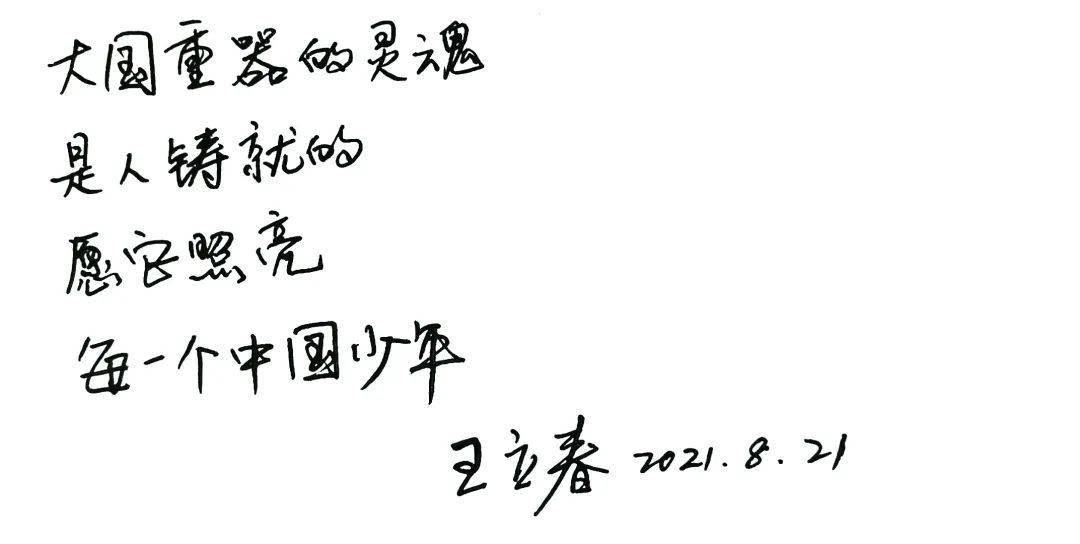 大国重器的灵魂
是人铸就的
愿它照亮
每一个中国少年
王立春 2021.8.21